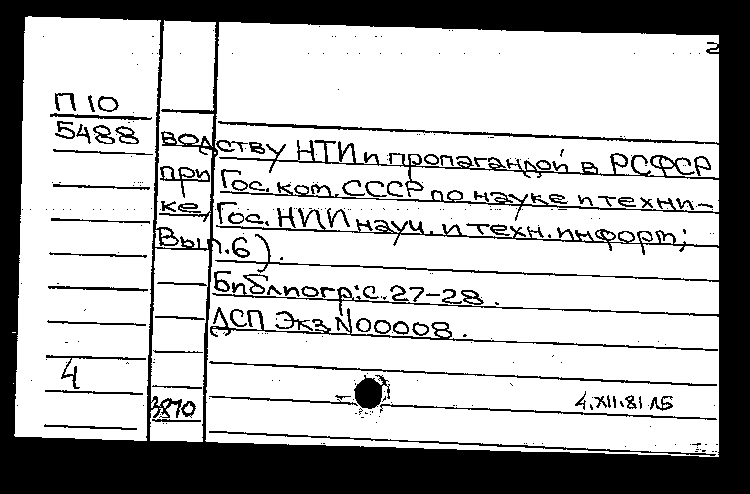 2
П 10
5488 водству НТИ и пропагандой в РСФСР
при Гос. ком. СССР по науке и техни-
ке, Гос. НИИ науч. и техн. информ;
Вып. 6).
Библиогр: с. 27-28.
ДСП Экз N00008.
4
3870
4.XII.81 ЛБ